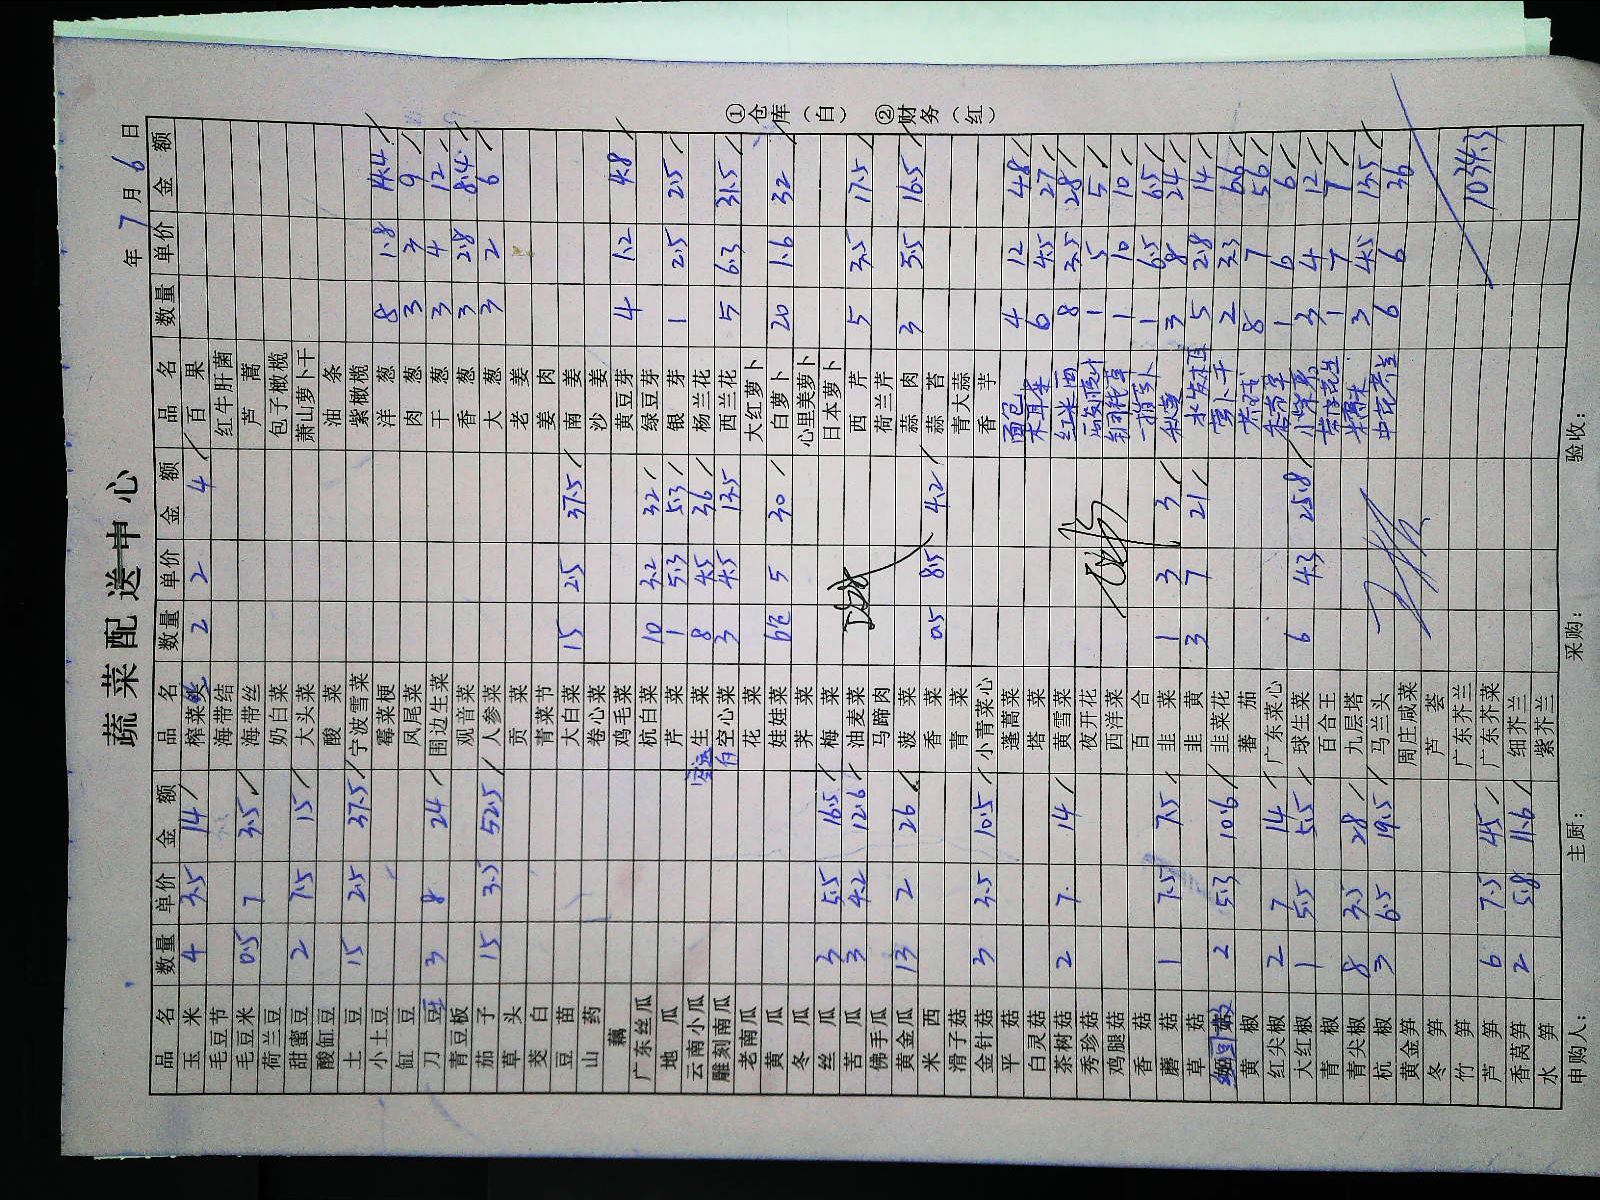 蔬菜配送中心
年 7 月 6 日
品名 数量 单价 金额 品名 数量 单价 金额 品名 数量 单价 金额
玉米 4 3.5 14 榨菜 2 2 4 百果
毛豆节 海带结 红牛肝菌
毛豆米 0.5 7 3.5 海带丝 芦蒿
荷兰豆 奶白菜 包子橄榄
甜蜜豆 2 7.5 15 大头菜 萧山萝卜干
酸缸豆 酸菜 油条
土豆 15 2.5 37.5 宁波雪菜 紫橄榄
小土豆 霉菜梗 洋葱 8 1.8 14.4
缸豆 凤尾菜 肉葱 3 3 9
刀豆 3 8 24 围边生菜 干葱 3 4 12
青豆板 观音菜 香葱 3 2.8 8.4
茄子 15 3.5 52.5 人参菜 大葱 3 2 6
草头 贡菜 老姜
茭白 青菜节 姜肉
豆苗 大白菜 15 2.5 37.5 南姜
山药 卷心菜 沙姜
藕 鸡毛菜 黄豆芽 4 1.2 4.8
广东丝瓜 杭白菜 10 3.2 32 绿豆芽
地瓜 芹菜 1 5.3 5.3 银芽 1 2.5 2.5
云南小瓜 生菜 8 4.5 36 杨兰花
雕刻南瓜 空心菜 3 4.5 13.5 西兰花 5 6.3 31.5
老南瓜 花菜 大红萝卜
黄瓜 娃娃菜 6包 5 30 白萝卜 20 1.6 32
冬瓜 荠菜 心里美萝卜
丝瓜 3 5.5 16.5 梅菜 日本萝卜
苦瓜 3 4.2 12.6 油麦菜 西芹 5 3.5 17.5
佛手瓜 马蹄肉 荷兰芹
黄金瓜 13 2 26 菠菜 蒜肉 3 5.5 16.5
米西 香菜 0.5 8.5 4.2 蒜苔
滑子菇 青菜 青大蒜
金针菇 3 3.5 10.5 小青菜心 香芋
平菇 蓬蒿菜 面包 4 12 48
白灵菇 塔菜 木耳菜 6 4.5 27
茶树菇 2 7 14 黄雪菜 红米西 8 3.5 28
秀珍菇 夜开花 1 5 5
鸡腿菇 西洋菜 1 10 10
香菇 百合 1 6.5 6.5
蘑菇 1 7.5 7.5 韭菜 1 3 3 3 8 24
草菇 韭黄 3 7 21 水发木耳 5 2.8 14
2 5.3 10.6 韭菜花 萝卜干 2 3.3 6.6
黄椒 蕃茄 8 7 56
红尖椒 2 7 14 广东菜心 1 6 6
大红椒 1 5.5 5.5 球生菜 6 4.3 25.8 3 4 12
青椒 百合王 1 7 7
青尖椒 8 3.5 28 九层塔 3 4.5 13.5
杭椒 3 6.5 19.5 马兰头 6 6 36
黄金笋 周庄咸菜
冬笋 芦荟
竹笋 广东芥兰
芦笋 6 7.5 45 广东芥菜 1034.3
香莴笋 2 5.8 11.6 细芥兰
水笋 紫芥兰
申购人： 主厨： 采购： 验收：
①仓库（白） ②财务（红）